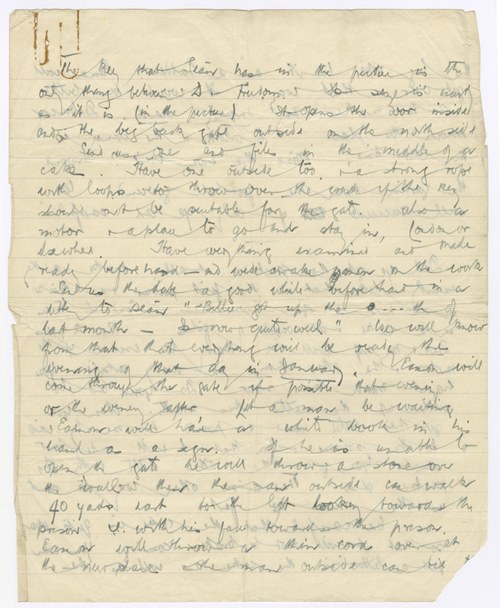 The key that Seán has in the picture is the
only thing between D & freedom. Its size is exact
as it is (in the picture). It opens the door inside
and the big back gate outside on the north side
Send one and files in the middle of a
cake. Have one outside too & a strong rope
with loops to throw over the wall if the key
should not be suitable for the gate. Also a
motor & a place to go and stay in, London or
elsewhere. Have everything examined and made
ready beforehand – and
the date a good while beforehand in a
letter to Seán "Billy got up the o....th of
last month – is now quite well" We will know
from that that everything will be ready the
evening of that day in January. Eamon will
come through the gate if possible that evening
or the evening after. Let a man be waiting
Eamon will have a white book in his
hand as a sign. If he is unable to
open the gate he will throw a stone over
the wall then the man outside can walk
40 yards east to the left looking towards the
prison i.e. with his face towards the prison.
Eamon will throw a thin cord over at
the new place & the man outside can tie